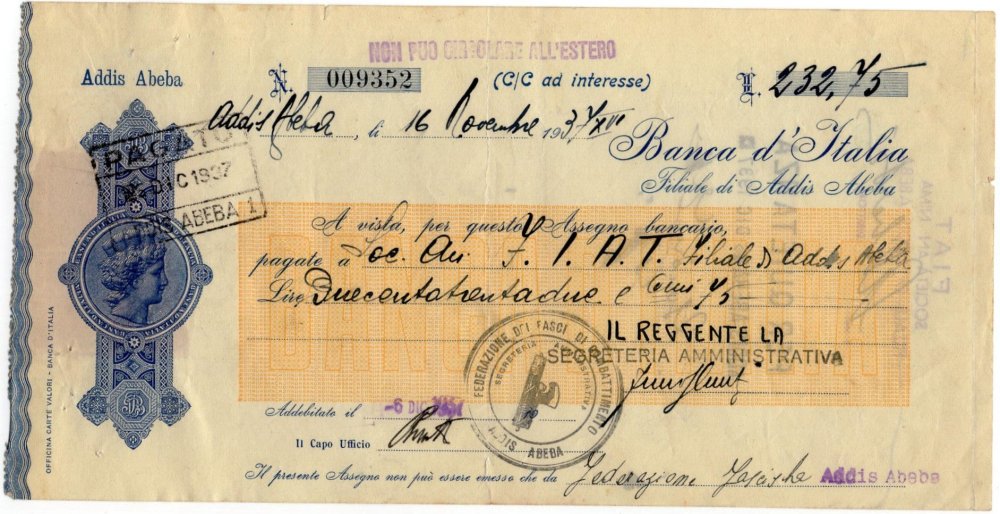 NON PUO CIRCOLARE ALL'ESTERO
Addis Abeba
N. 009352
(C/C ad interesse)
£. 232,75
Addis Abeba, li 16 Novembre 1937/XVI
Banca d'Italia
Filiale di Addis Abeba
PAGATO
DIC 1937
ADDIS ABEBA 1
A vista, per questo Assegno bancario,
pagate a Soc. An. F.I.A.T. Filiale di Addis Abeba
Lire Duecentotrentadue e Cmi 75
IL REGGENTE LA
SEGRETERIA AMMINISTRATIVA
FEDERAZIONE DEI FASCI DI COMBATTIMENTO
SEGRETERIA AMMINISTRATIVA
ADDIS ABEBA
Addebitato il -6 DIC 1937
Il Capo Ufficio
Il presente Assegno non può essere emesso che da Federazione Fascista Addis Abeba
OFFICINA CARTE VALORI - BANCA D'ITALIA